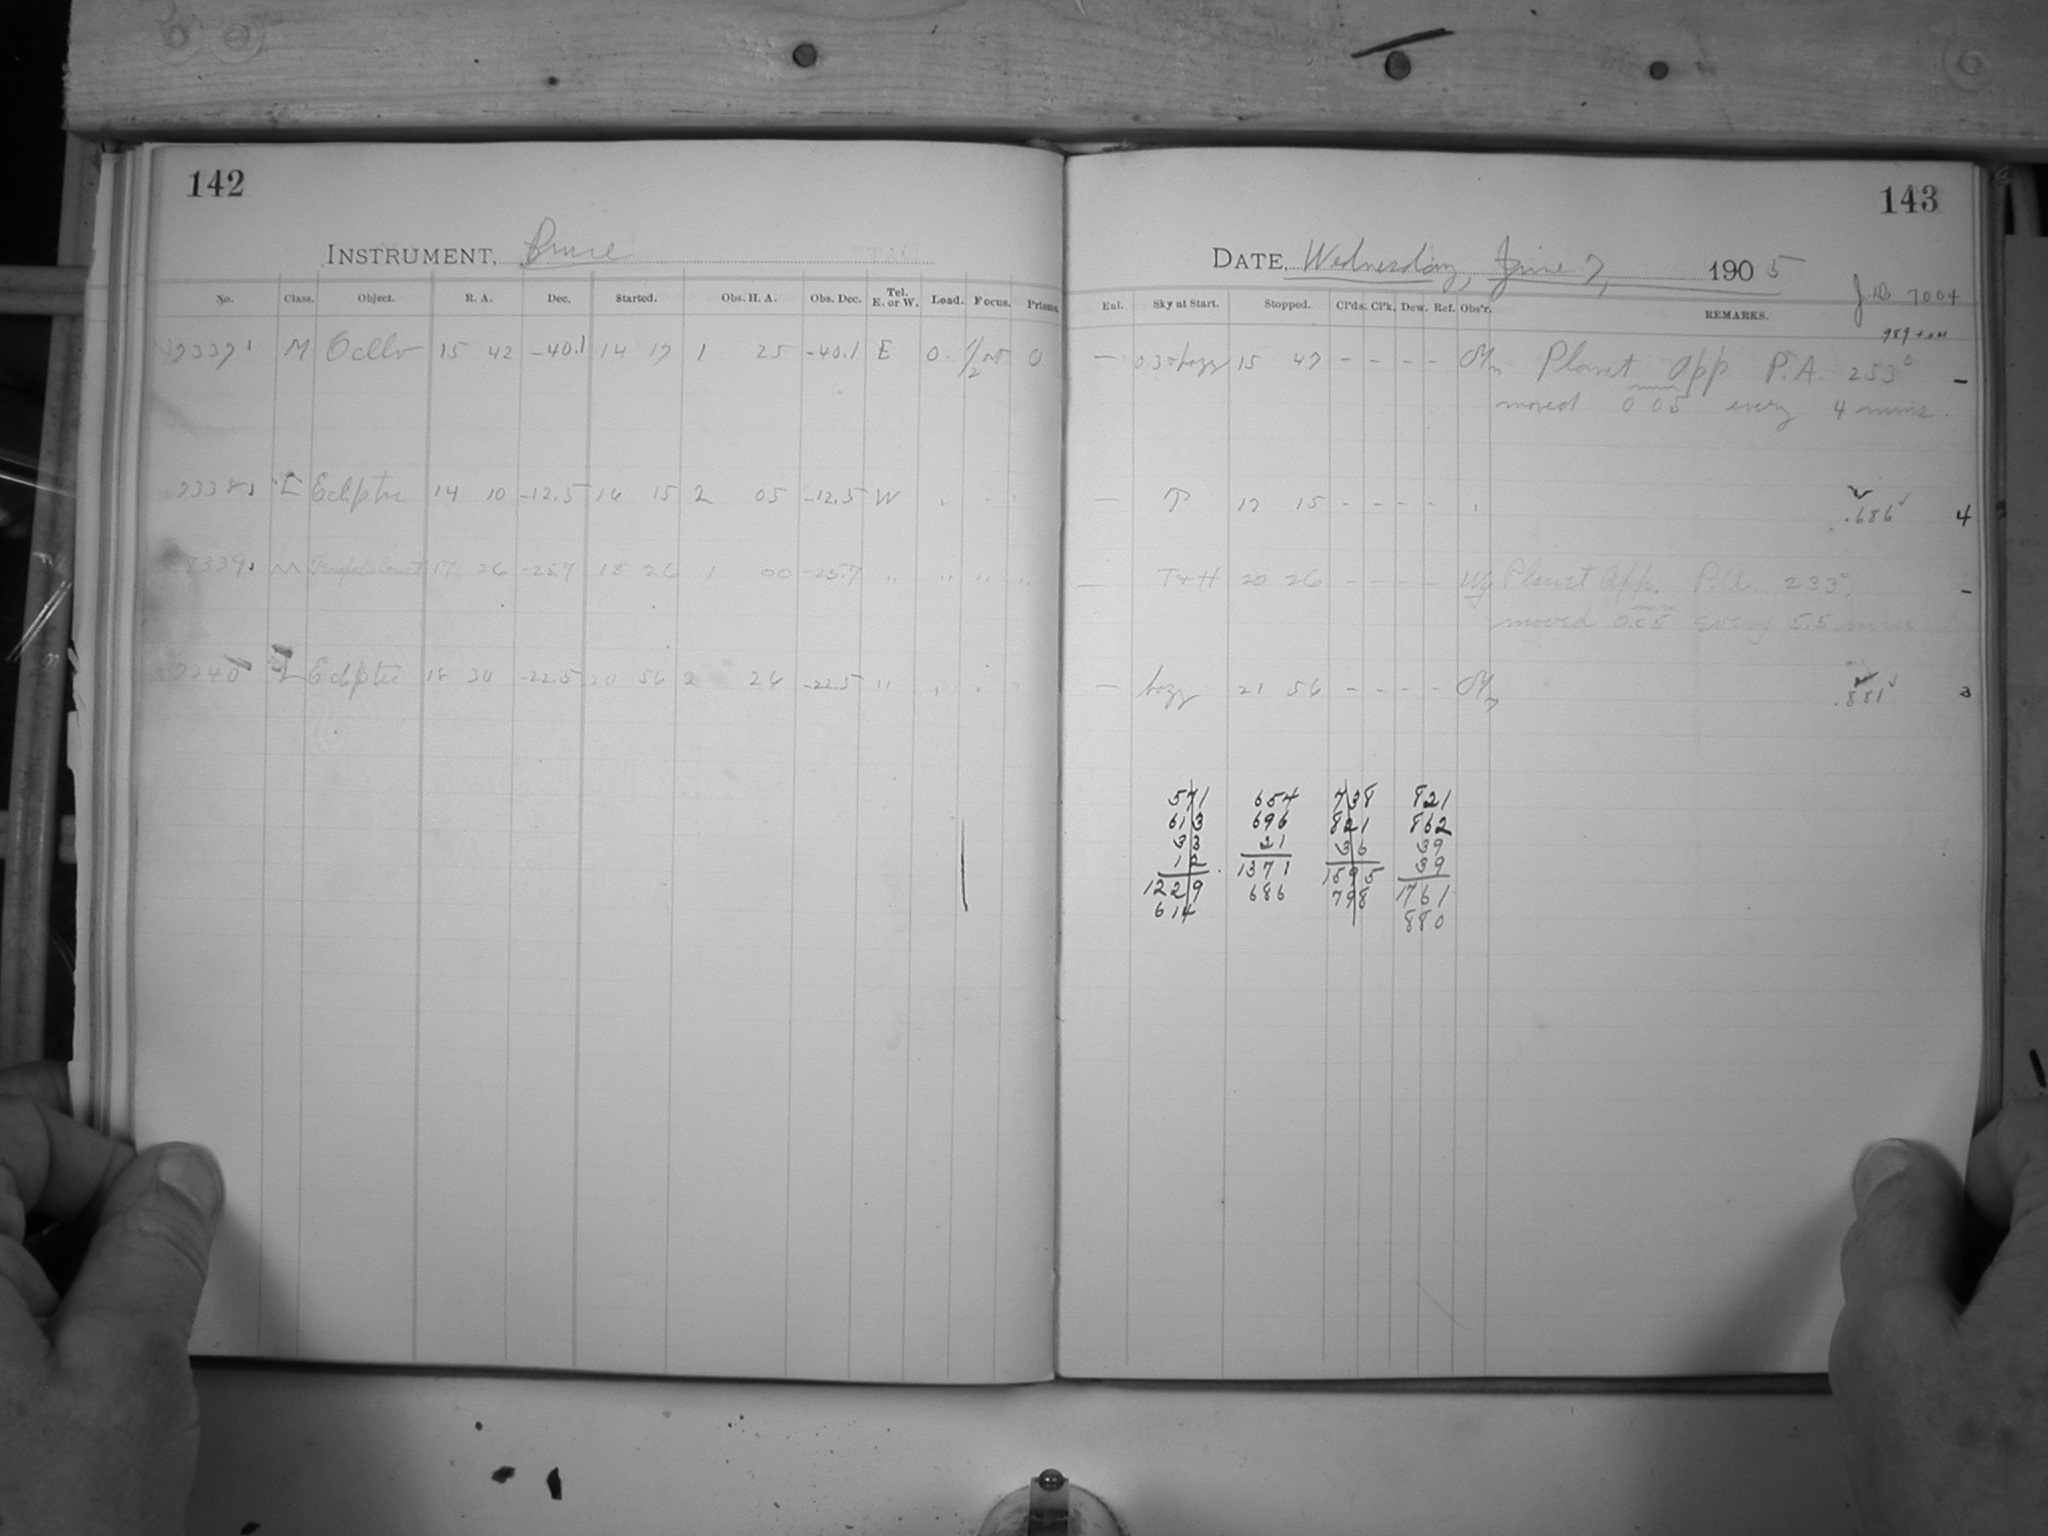 142
INSTRUMENT, Bruce
No. Class. Object. R. A. Dec. Started. Obs. H. A. Obs. Dec. Tel. E. or W. Load. Focus. Prisms.
7337 M Ocllo 15 42 -40.1 14 17 1 25 -40.1 E 0 0
7338 L Ecliptic 14 10 -12.5 16 15 2 05 -12.5 W
7339 M 17 26 -25.7 18 26 1 00 -25.7 " " " "
7340 L Ecliptic 18 30 -22.5 20 56 2 26 -22.5 "
143
DATE, Wednesday, June 7, 1905
J.D. 7004
Ent. Sky at Start. Stopped. Cl'ds. Cl'k. Dew. Ref. Obs'r. REMARKS.
— hazy 15 47 - - - - Planet App. P.A. 253° -
moved 0.05 mm every 4 mins.
— T 17 15 - - - - .686 4
— T+H 20 26 - - - - Planet App. P.A. 233° -
moved 0.05 mm every 5.5 mins
— hazy 21 56 - - - - .881 3
571 654 738 821
613 696 821 862
33 21 36 39
12 1371 1595 39
1229 686 798 1761
614 880